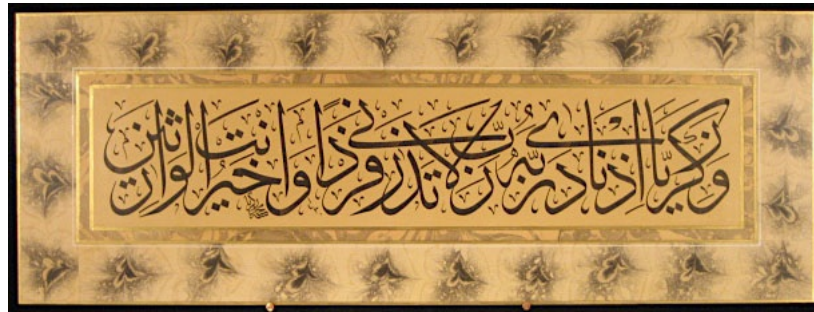 وَزَكَرِيَّا إِذْ نَادَى رَبَّهُ رَبِّ لَا تَذَرْنِي فَرْدًا وَأَنْتَ خَيْرُ الْوَارِثِينَ